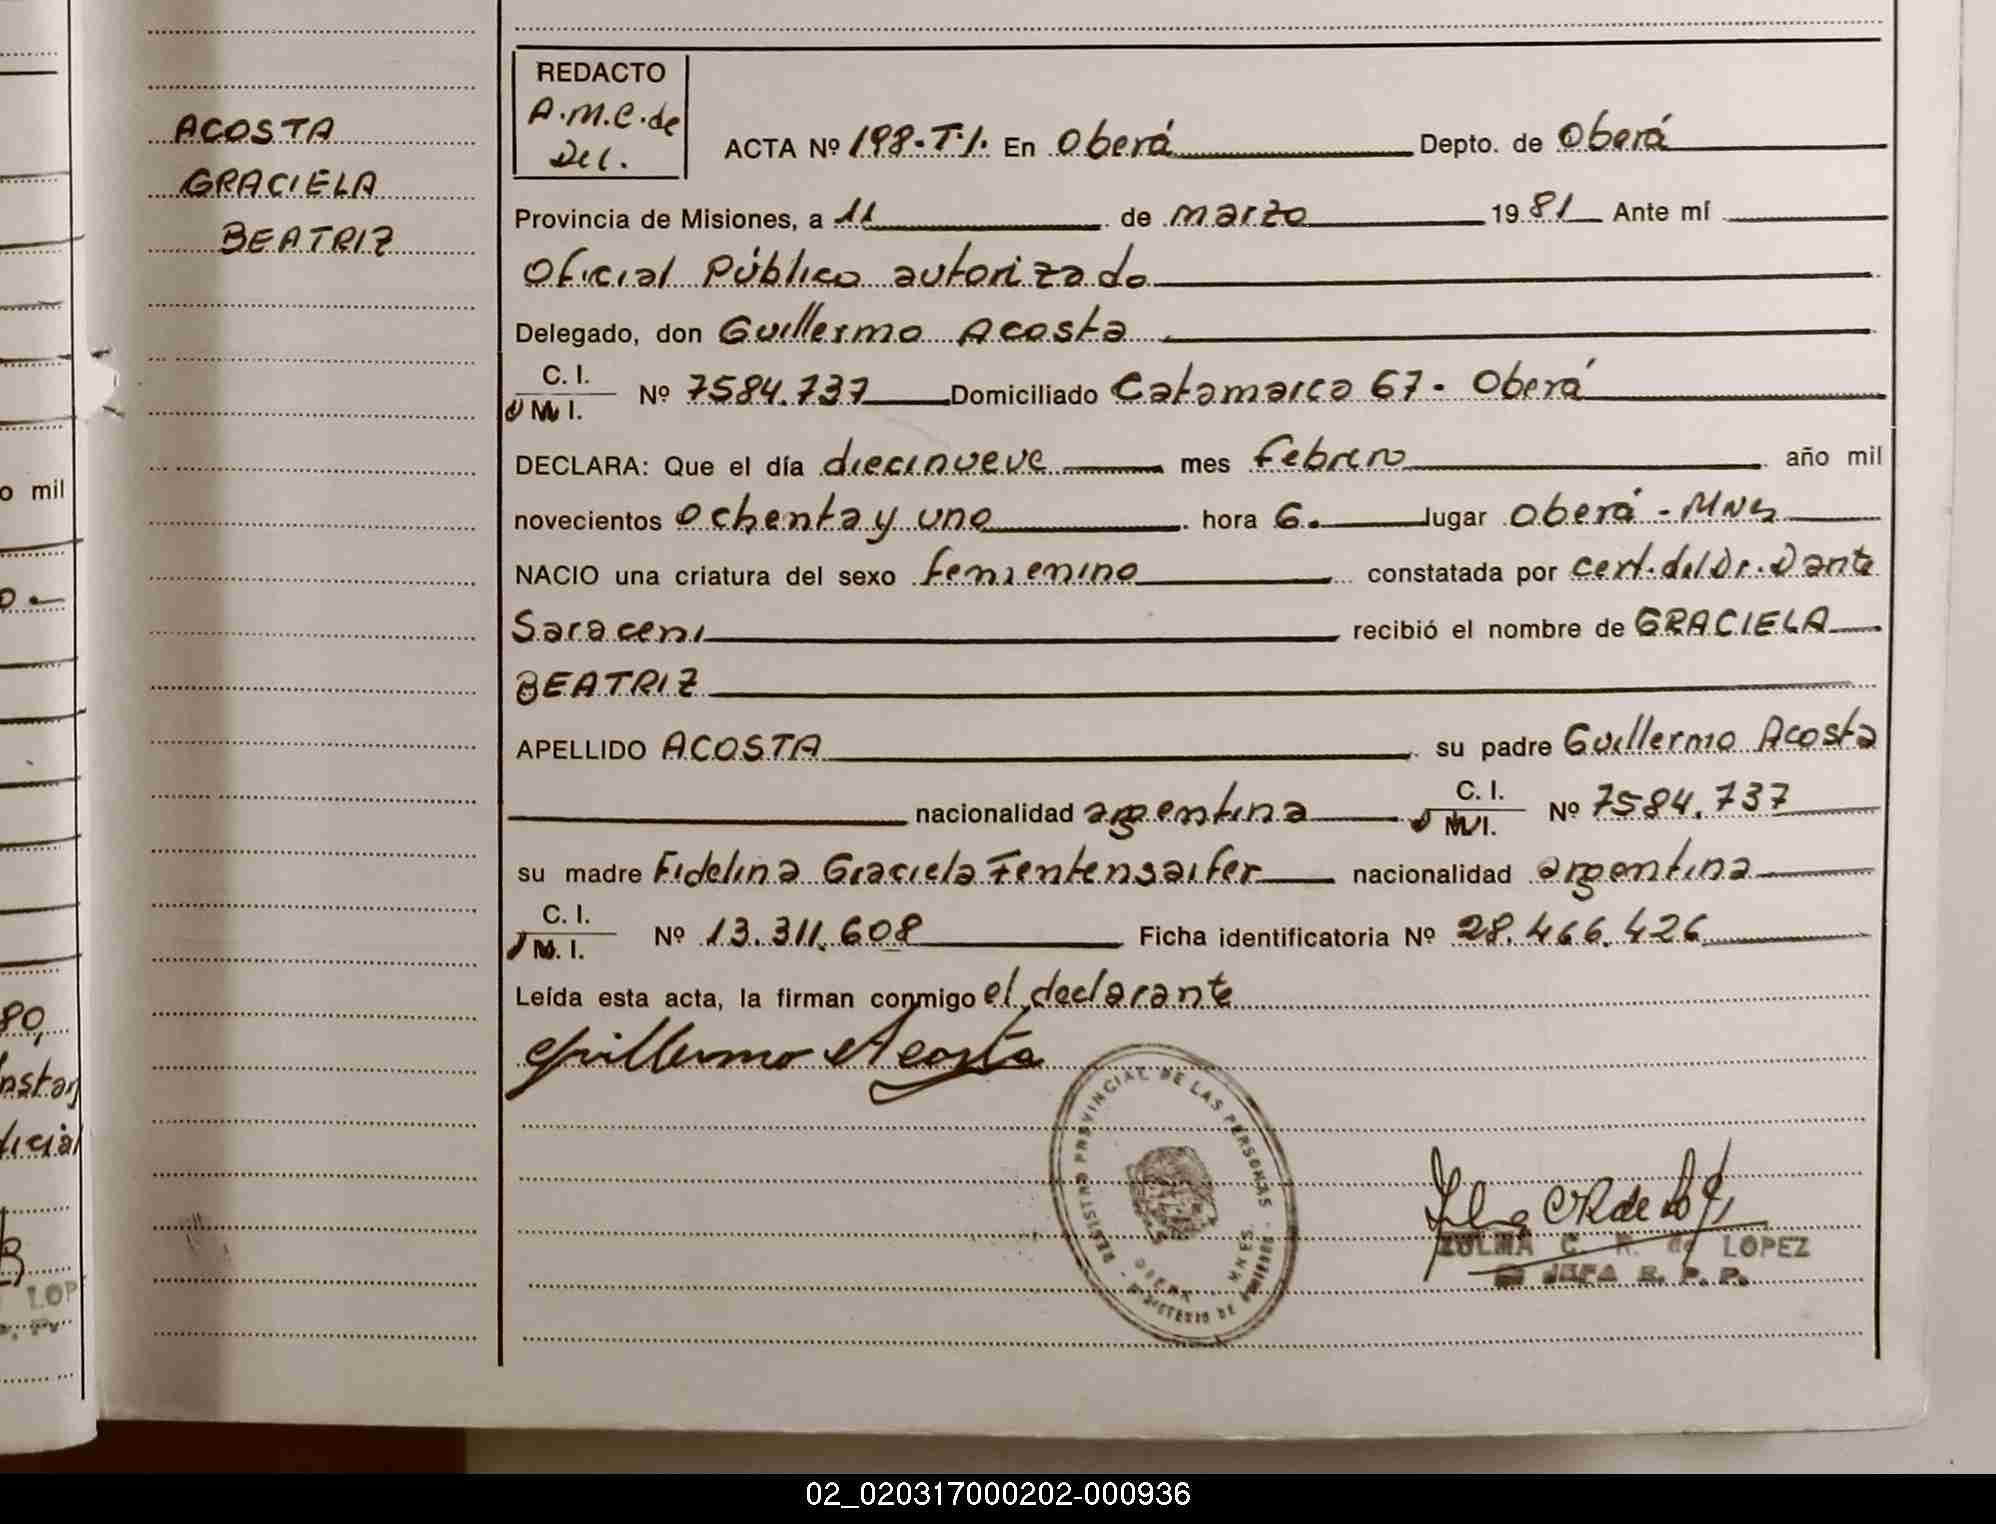 ACOSTA
GRACIELA
BEATRIZ
REDACTO
A.M.C. de
Del.
ACTA Nº 198-T.I. En Oberá Depto. de Oberá
Provincia de Misiones, a 11 de marzo 1981 Ante mí
Oficial Público autorizado
Delegado, don Guillermo Acosta
C. I.
M. I. Nº 7584.737 Domiciliado Catamarca 67 - Oberá
DECLARA: Que el día diecinueve mes febrero año mil
novecientos ochenta y uno hora 6. lugar Oberá - Mnes
NACIO una criatura del sexo femenino constatada por cert. del Dr. Dante
Saraceni recibió el nombre de GRACIELA
BEATRIZ
APELLIDO ACOSTA su padre Guillermo Acosta
nacionalidad argentina C. I.
M. I. Nº 7584.737
su madre Fidelina Graciela Fentensaifer nacionalidad argentina
C. I.
M. I. Nº 13.311.608 Ficha identificatoria Nº 28.466.426
Leída esta acta, la firman conmigo el declarante
Guillermo Acosta
REGISTRO PROVINCIAL DE LAS PERSONAS
MINISTERIO DE GOBIERNO
OBERA MNES.
ZULMA C. R. de LOPEZ
JEFA R. P. P.
o mil
80,
LOP
02_020317000202-000936